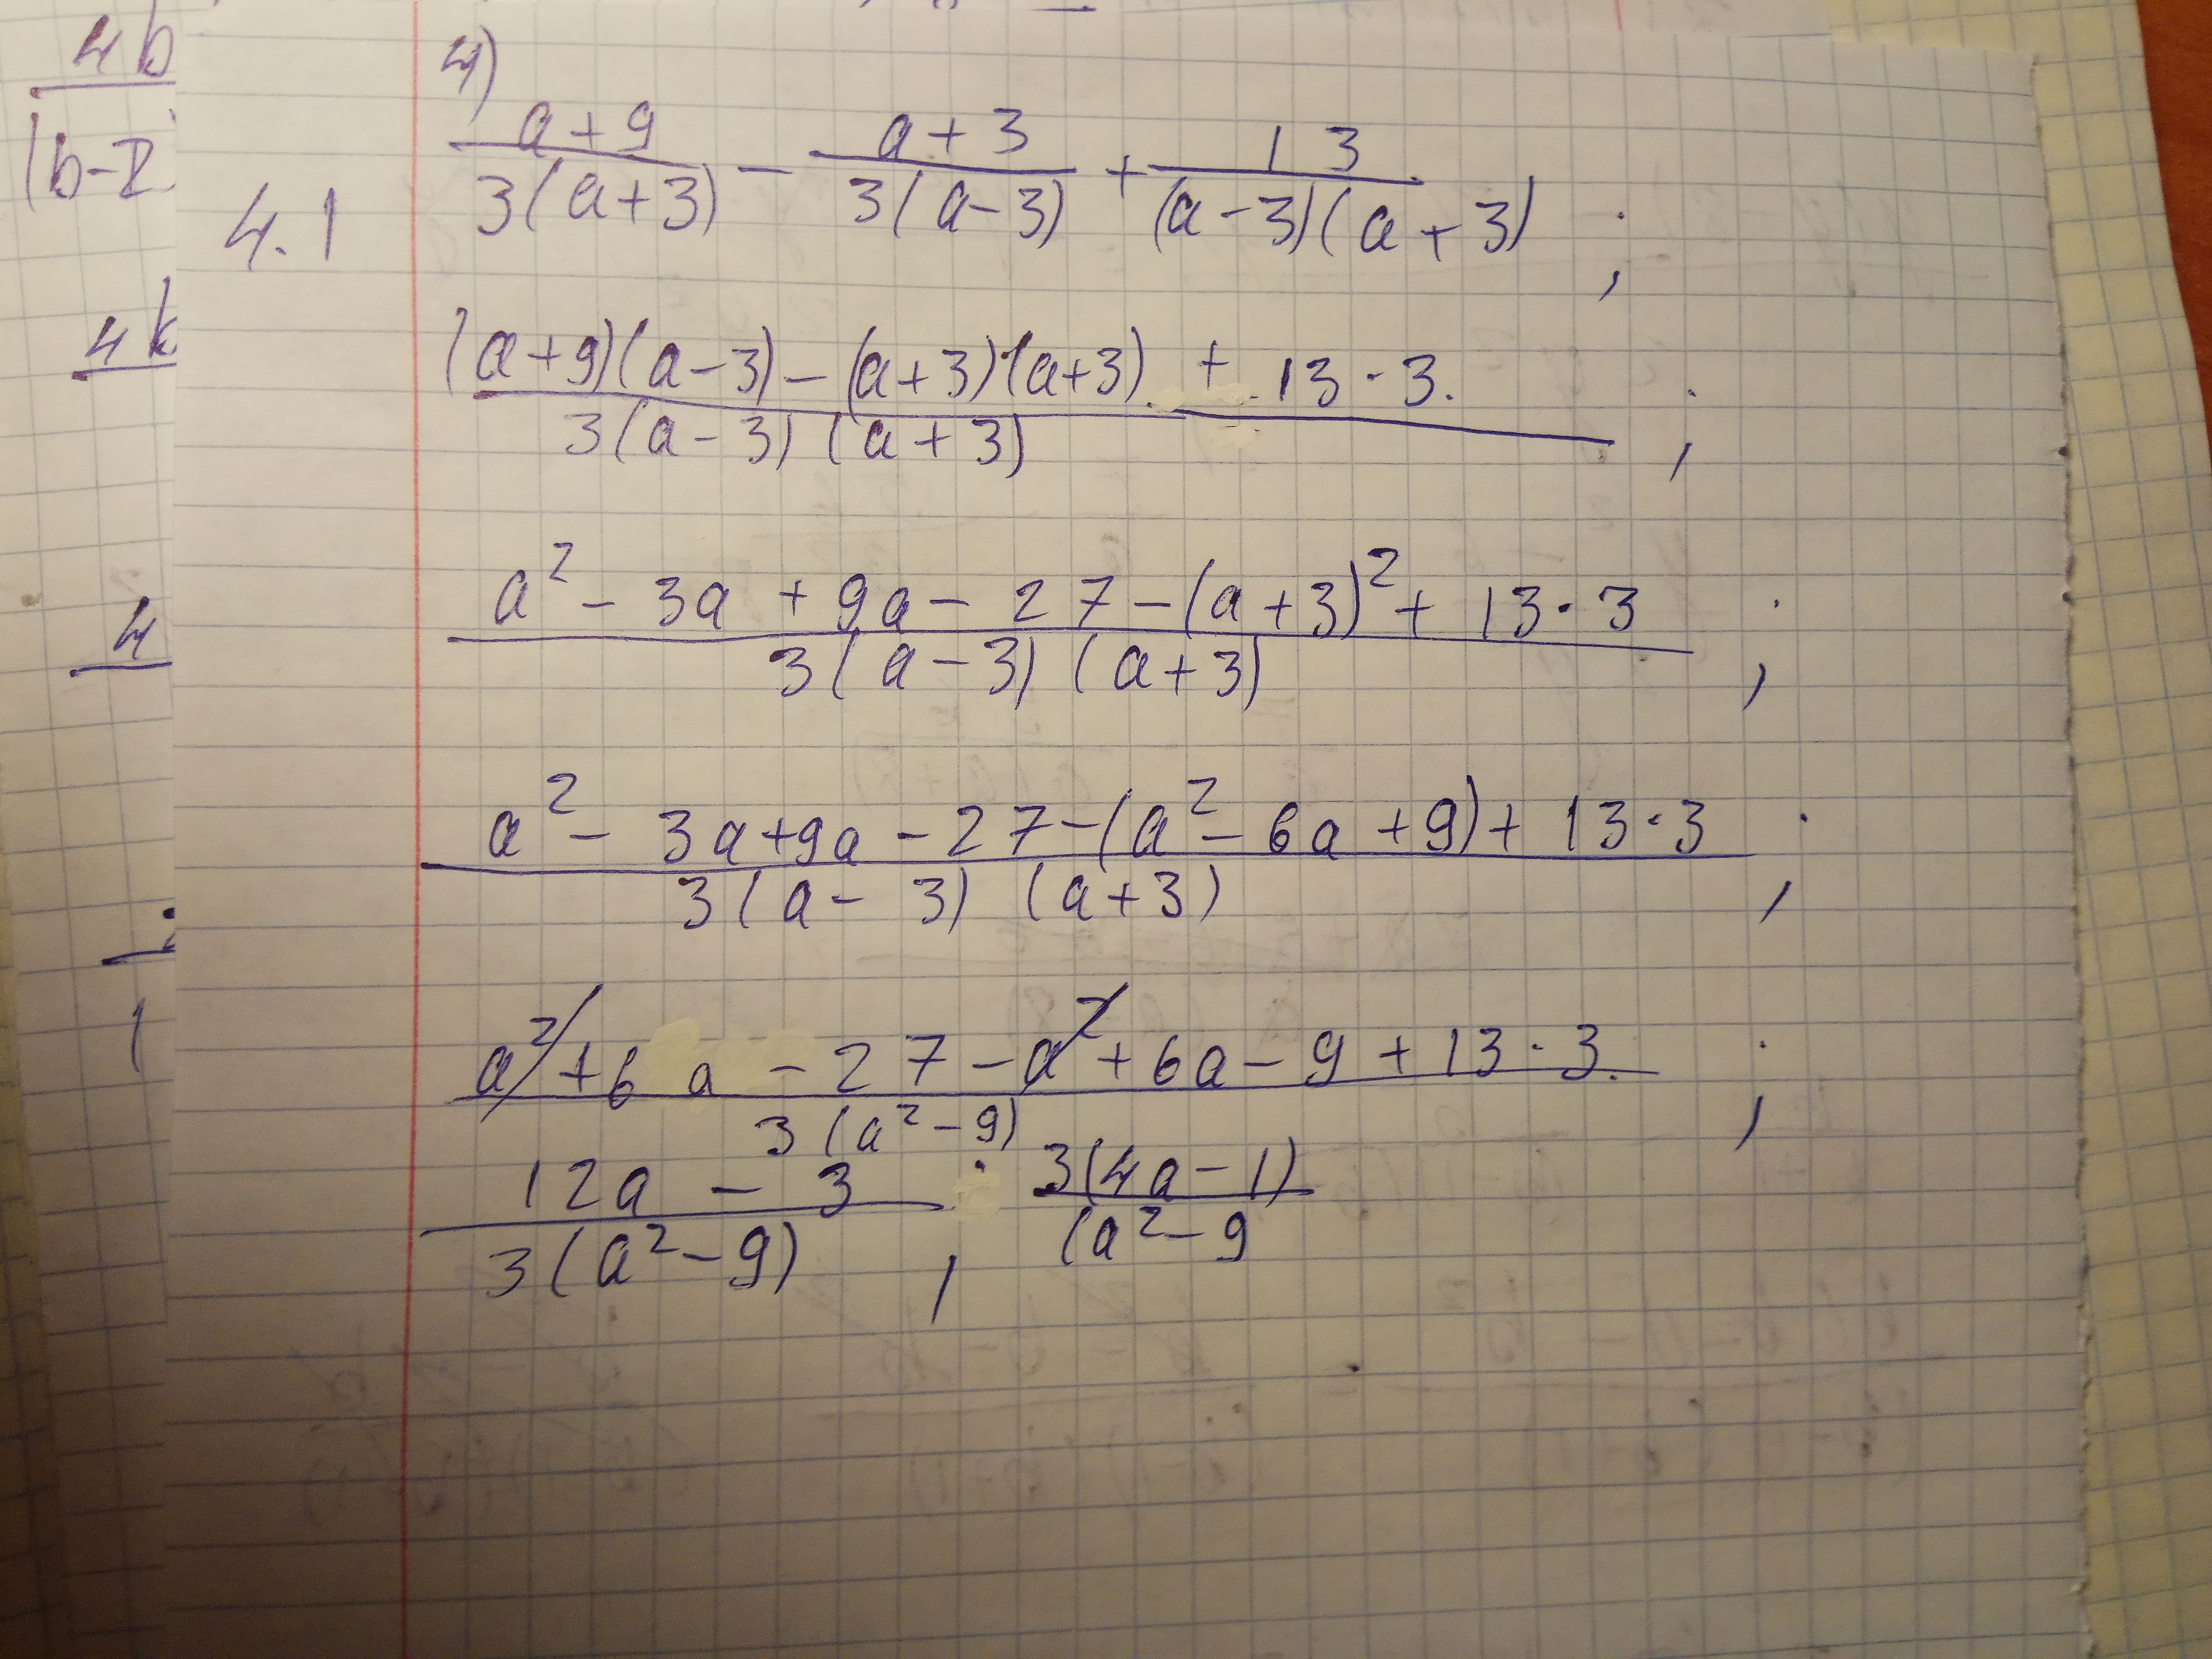 4b
(b-2
4)
4.1
(a+9)/(3(a+3)) - (a+3)/(3(a-3)) + 13/((a-3)(a+3)) ;
((a+9)(a-3) - (a+3)(a+3) + 13·3.)/(3(a-3)(a+3)) ;
4
(a² - 3a + 9a - 27 - (a+3)² + 13·3)/(3(a-3)(a+3)) ;
4
(a² - 3a + 9a - 27 - (a² - 6a + 9) + 13·3)/(3(a-3)(a+3)) ;
(a² + 6a - 27 - a² + 6a - 9 + 13·3.)/(3(a² - 9)) ;
(12a - 3)/(3(a² - 9)) ; 3(4a - 1)/(a² - 9